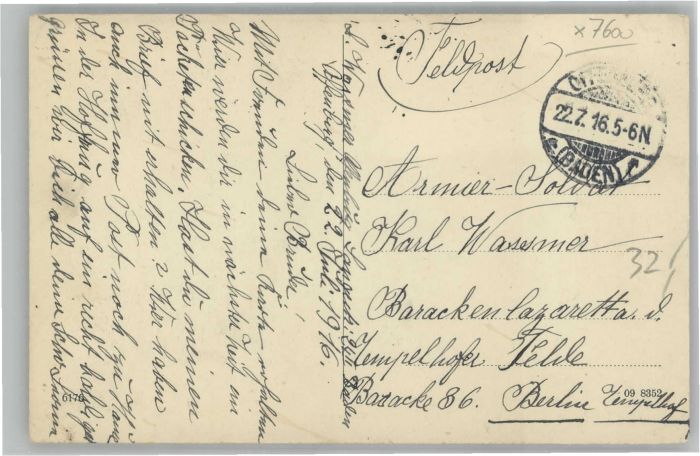 x 7600
Feldpost
22.7.16.5-6N.
(BADEN)
Armier-Soldat
Karl Wassmer
Barackenlazarett a. d.
Tempelhofer Felde
Baracke 36. Berlin Tempelhof
32
6176
09 8352
Offenburg, den 22 Juli 1916.
Lieber Bruder!
Mit Freuden deine Karte erhalten
Wir werden dir in nächster Zeit ein
Päckchen schicken. Hast du meinen
Brief mit erhalten? Wir haben
auch immer Post noch von
In der Hoffnung auf ein recht bald
grüssen wir Dich alle deine